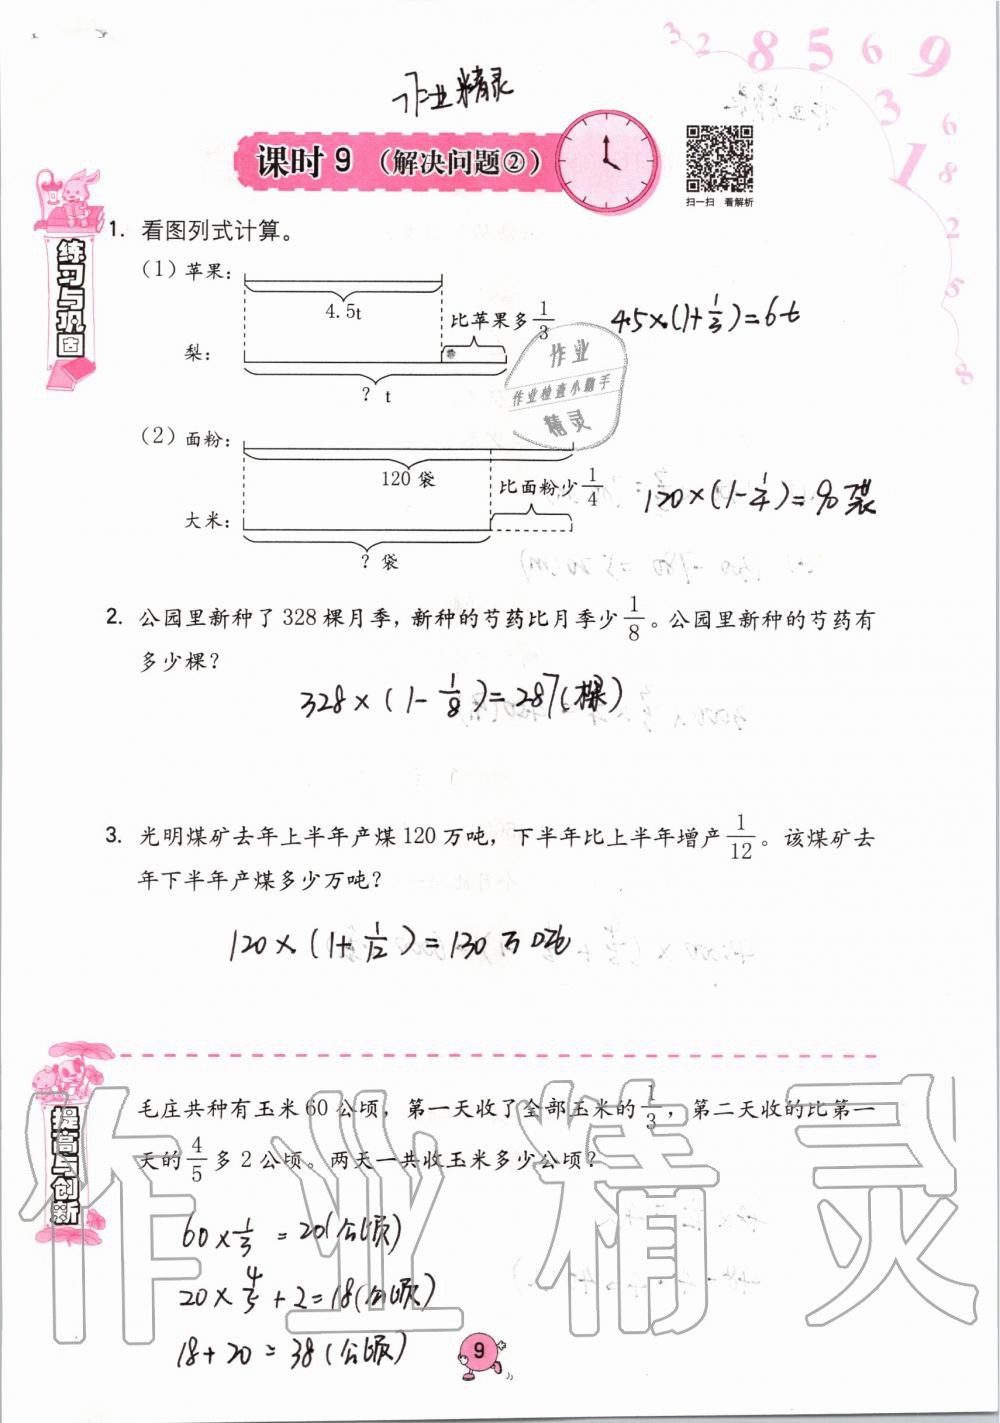 作业精灵
课时9（解决问题②）
扫一扫 看解析
练习与巩固
1. 看图列式计算。
（1）苹果：
4.5t
比苹果多1/3
4.5×(1+1/3)=6t
梨：
? t
作业
作业检查小助手
精灵
（2）面粉：
120袋
比面粉少1/4
120×(1-1/4)=90袋
大米：
? 袋
2. 公园里新种了328棵月季，新种的芍药比月季少1/8。公园里新种的芍药有
多少棵？
328×(1-1/8)=287(棵)
3. 光明煤矿去年上半年产煤120万吨，下半年比上半年增产1/12。该煤矿去
年下半年产煤多少万吨？
120×(1+1/12)=130万吨
提高与创新
毛庄共种有玉米60公顷，第一天收了全部玉米的1/3，第二天收的比第一
天的4/5多2公顷。两天一共收玉米多少公顷？
60×1/3=20(公顷)
20×4/5+2=18(公顷)
18+20=38(公顷)
作业精灵
9